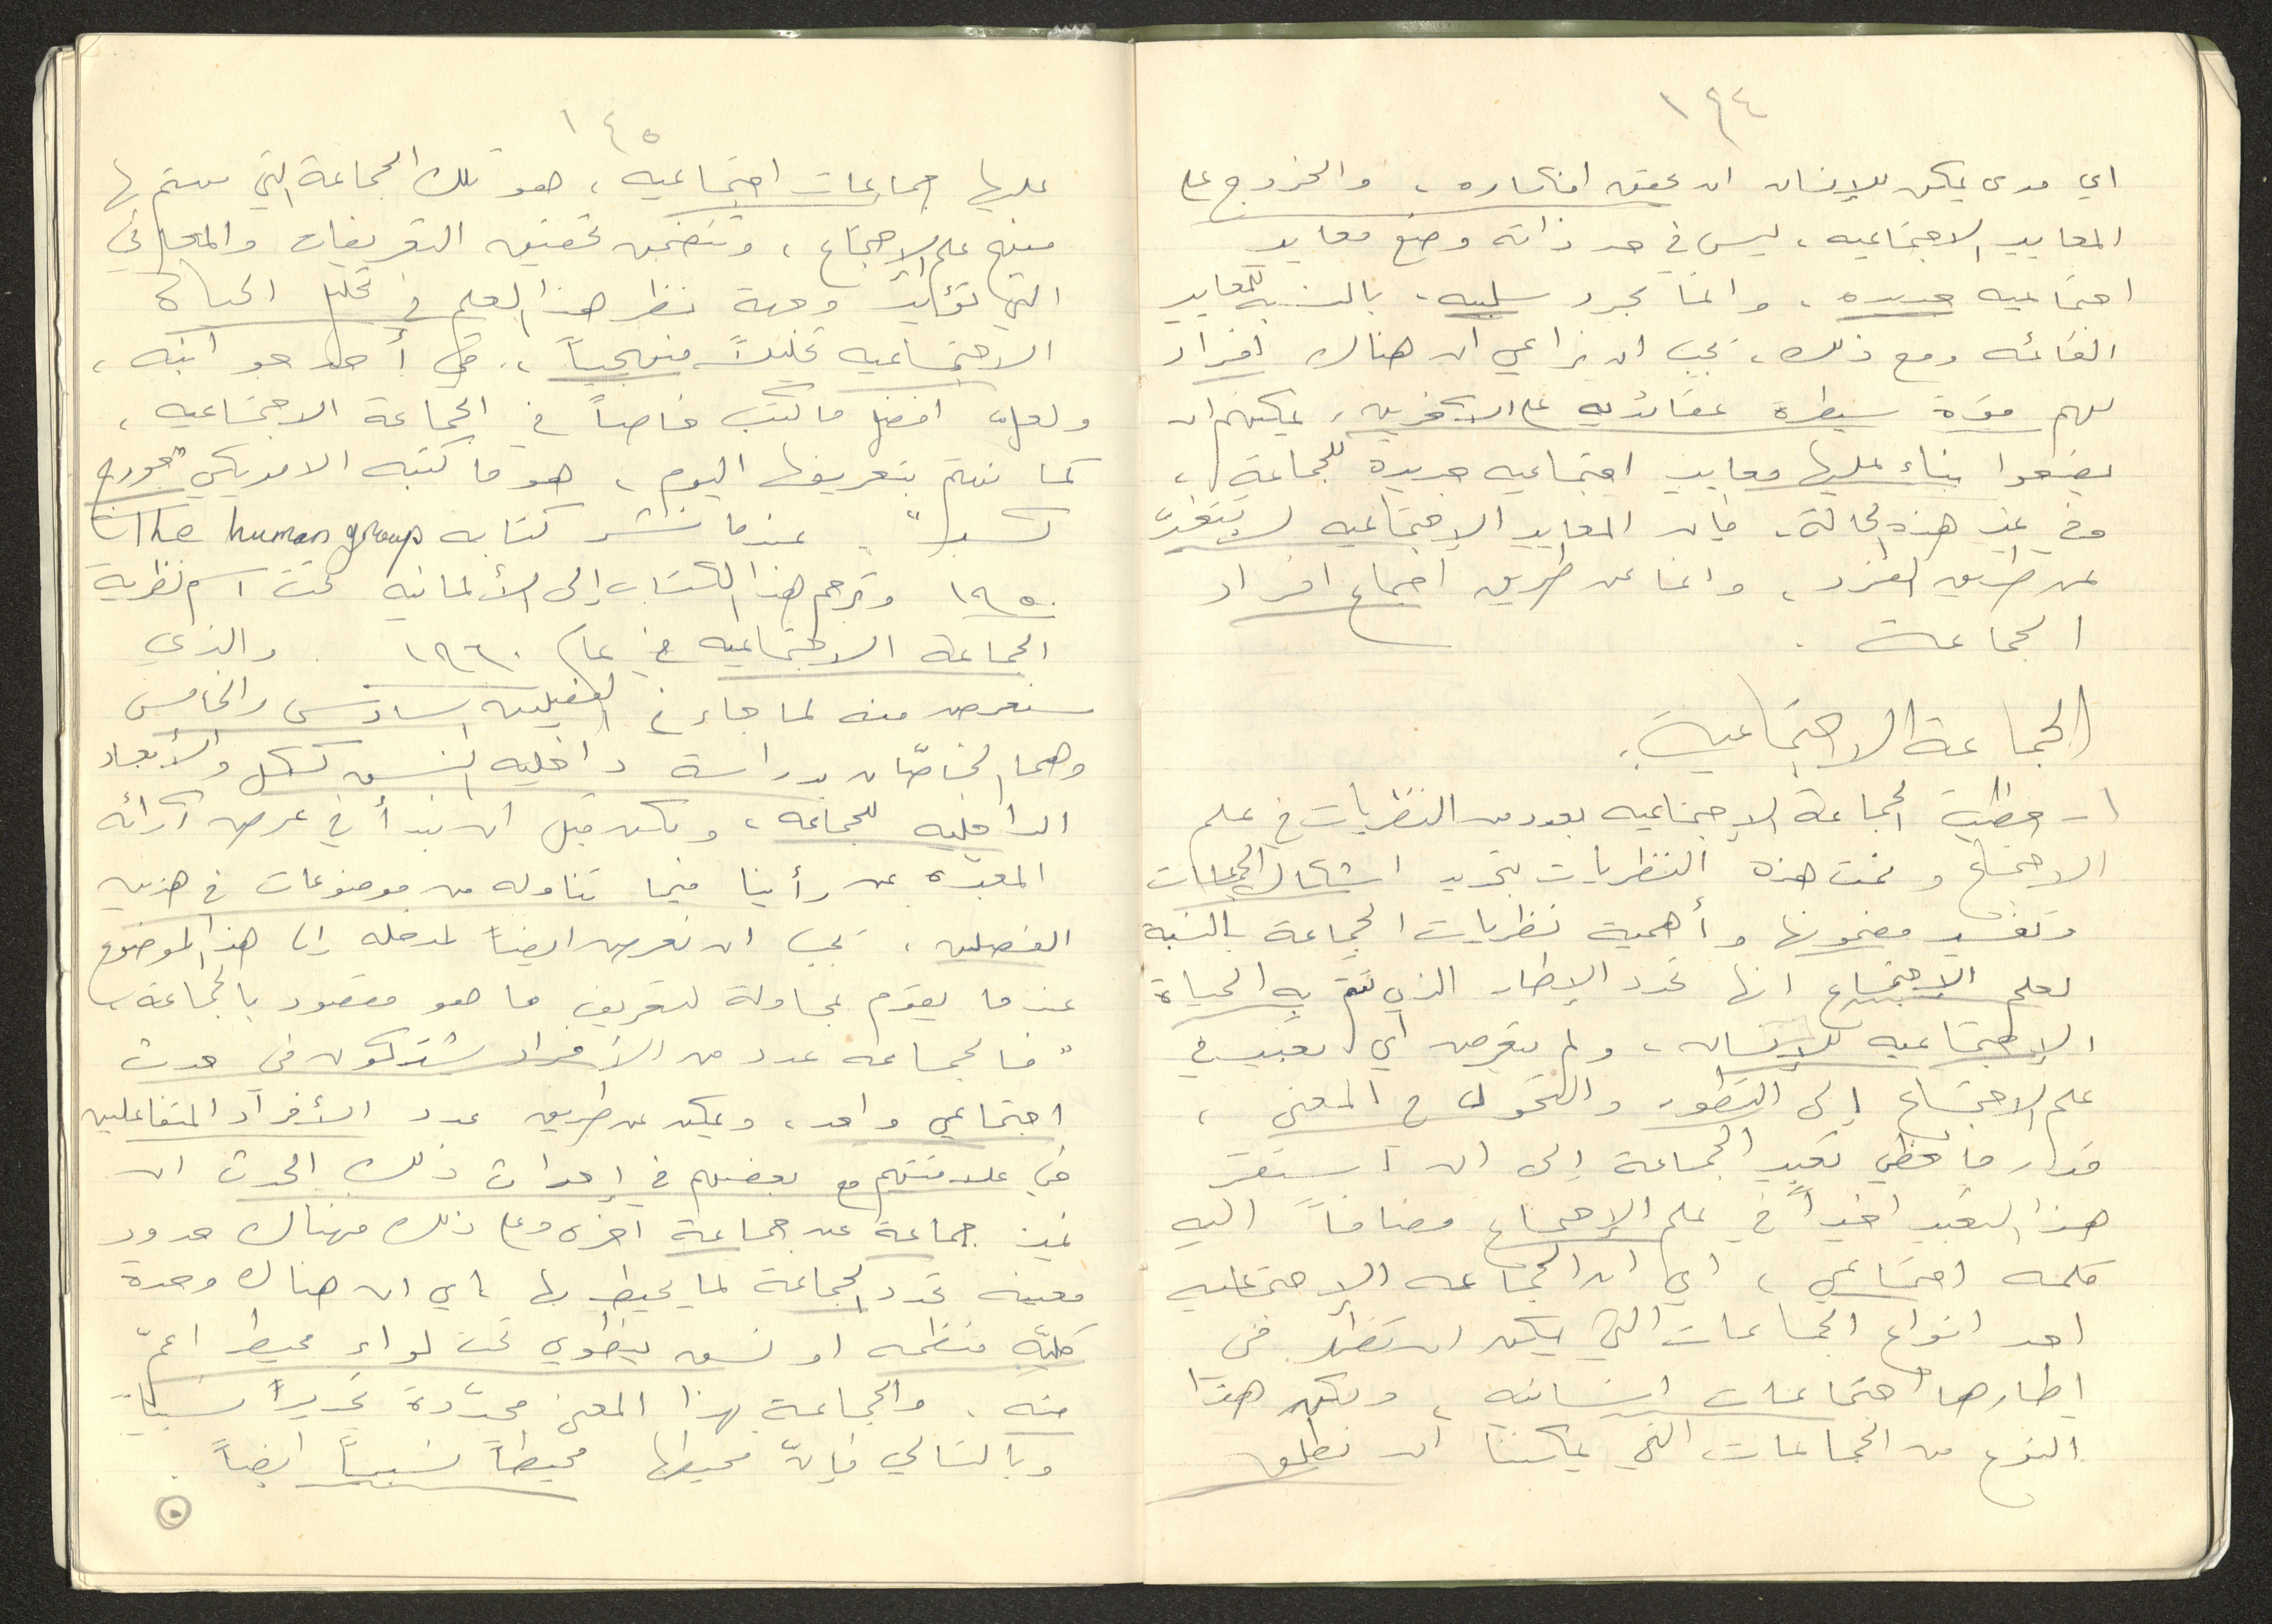 ١٤٤
اي مدى يمكن للإنسان ان يحقق افكاره، والخروج على
المعايير الاجتماعيه، ليس في حد ذاته وضع معايير
اجتماعيه جديده، وانما مجرد سلبيه، بالنسبه للمعايير
القائمه ومع ذلك، يجب ان يراعي ان هناك افراد
لهم قوة سيطرة عقائديه على الآخرين، يمكنهم ان
يضعوا بناء عليها معايير اجتماعيه جديدة للجماعة،
وفي غير هذه الحالة، فإن المعايير الاجتماعيه لا تتغيّر
عن طريق الفرد، وانما عن طريق اجماع افراد
الجماعة.
الجماعة الاجتماعية:
١- حظيت الجماعة الاجتماعيه بعدد من النظريات في علم
الاجتماع وتمت هذه النظريات بتحديد اشكال الجماعات
وتفسير مضمونها وأهمية نظريات الجماعة بالنسبة
لعلم الاجتماع انها تحدد الإطار الذي تتم به الحياة
الاجتماعيه للإنسان، ولم يتعرض اي تعبير في
علم الاجتماع إلى التطور والتحول في المعنى،
قدر ما حظي تعبير الجماعة إلى ان استقر
هذا التعبير اخيراً في علم الاجتماع مضافاً اليه
كلمه اجتماعي، اي ان الجماعه الاجتماعيه
احد انواع الجماعات التي يمكن ان تنظر في
اطارها اجتماعات انسانيه، ولكن هذا
النوع من الجماعات التي يمكننا ان نطلق
١٤٥
عليها جماعات اجتماعيه، هو تلك الجماعة التي يهتم بها
منهج علم الاجتماع، وتتضمن تحقيق التعريفات والمعاني
التي تؤيد وجهة نظر هذا العلم في تحليل الحياة
الاجتماعيه تحليلاً منهجياً، في أحد جوانبه،
ولعل افضل ما كتب خاصاً في الجماعة الاجتماعيه،
كما نهتم بتعريفها اليوم، هو ما كتبه الامريكي "جورج
" عندما نشر كتابه The human group
١٩٥٠ وترجم هذا الكتاب إلى الألمانيه تحت اسم نظرية
الجماعة الاجتماعيه في عام ١٩٦٠ والذي
سنعرض منه لما جاء في الفصلين السادس والخامس
وهما الخاصّان بدراسة داخليه النسق ككل والأبعاد
الداخليه للجماعه، ولكن قبل ان نبدأ في عرض آرائه
المعبّره عن رأينا فيما تناوله من موضوعات في هذين
الفصلين، يجب ان نعرض ايضاً لمدخله إلى هذا الموضوع
عندما يقوم بمحاولة لتعريف ما هو مقصود بالجماعة،
"فالجماعه عدد من الأفراد يشتركون في حدث
اجتماعي واحد، ويمكن عن طريق عدد الأفراد المتفاعلين
في علاقتهم مع بعضهم في إحداث ذلك الحدث ان
نميز جماعة عن جماعة اخرى وعلى ذلك فهناك حدود
معينه تحدد الجماعة لما يحيط بها، اي ان هناك وحدة
كليّه منظمه او نسق ينطوي تحت لواء محيط اعمّ
منه، والجماعة بهذا المعنى محدّدة تحديداً نسبياً
وبالتالي فإنّ محيطها محيطاً نسبياً ايضاً.